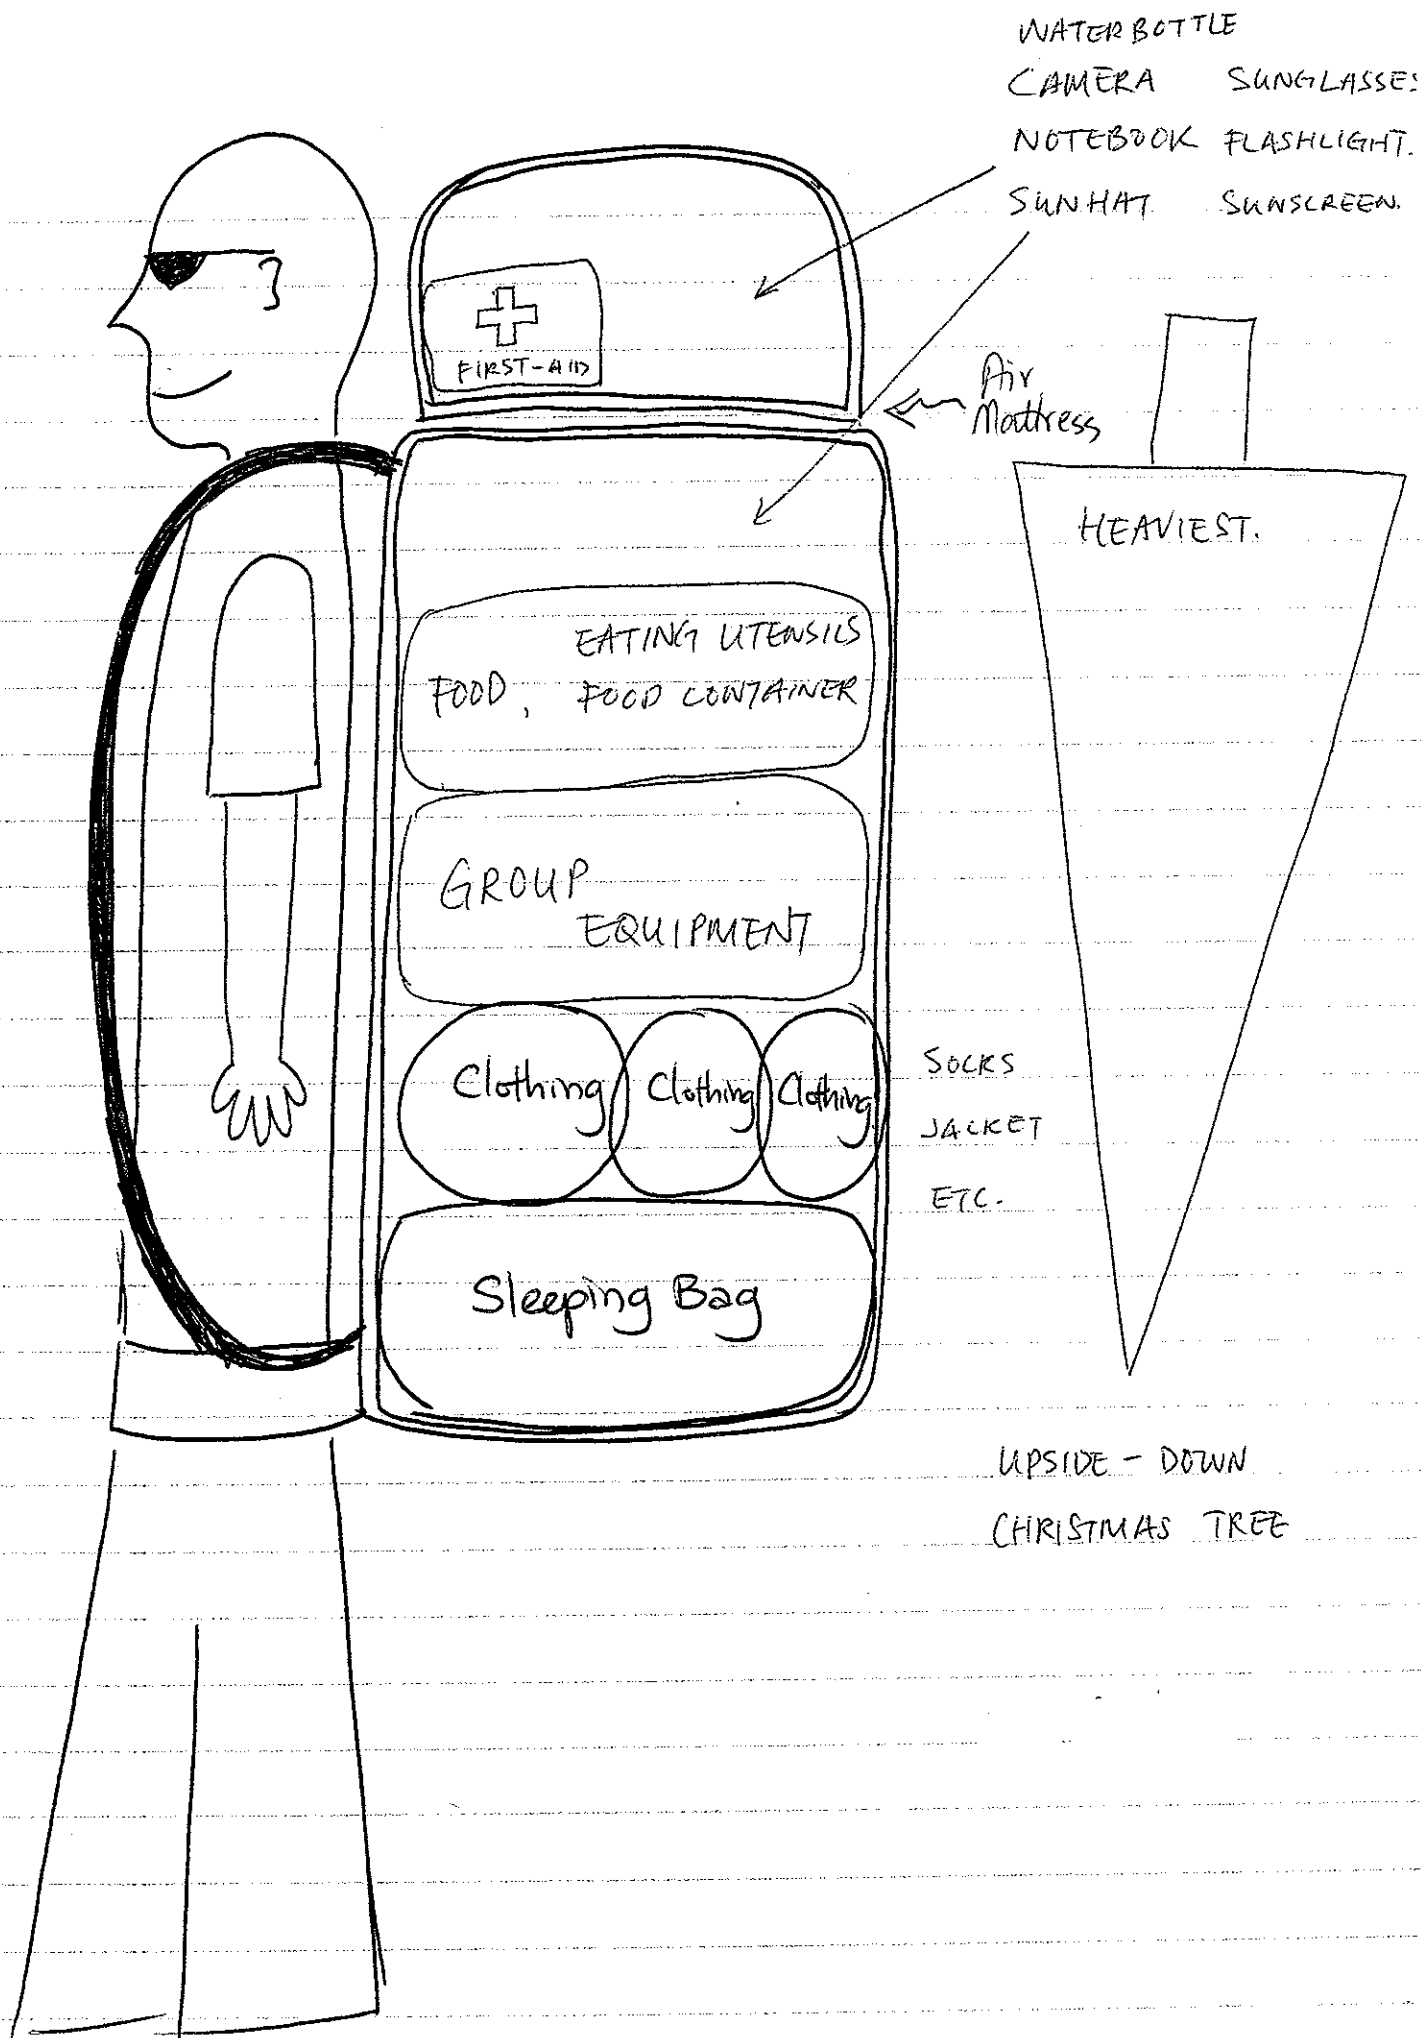 WATERBOTTLE
CAMERA SUNGLASSES
NOTEBOOK FLASHLIGHT.
SUNHAT SUNSCREEN.
FIRST-AID
Air
Mattress
HEAVIEST.
EATING UTENSILS
FOOD, FOOD CONTAINER
GROUP
EQUIPMENT
Clothing Clothing Clothing
SOCKS
JACKET
ETC.
Sleeping Bag
UPSIDE-DOWN
CHRISTMAS TREE